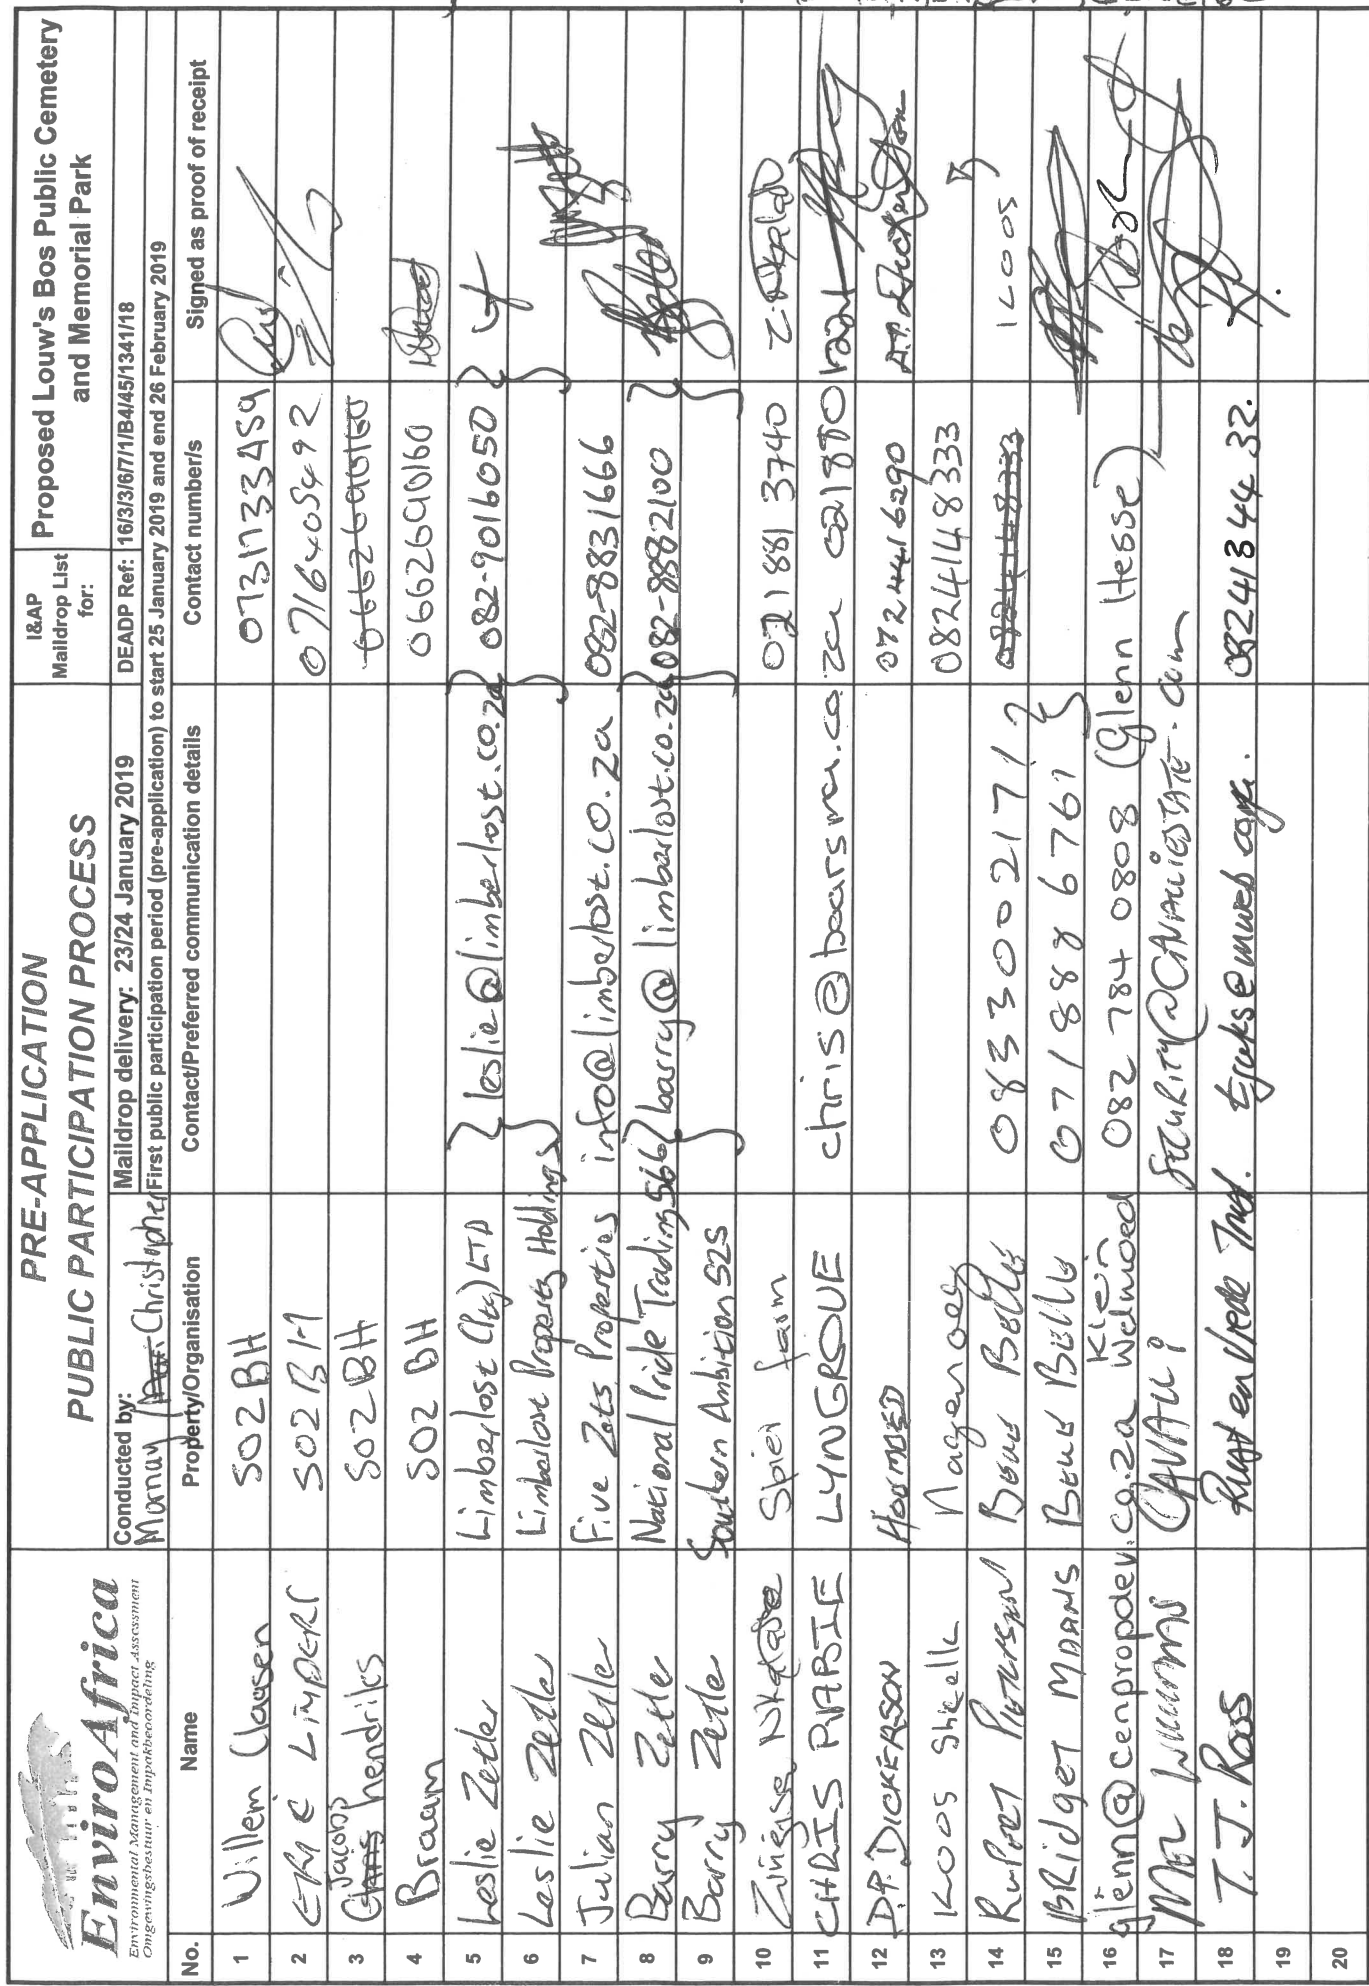 EnviroAfrica
Environmental Management and Impact Assessment
Omgewingsbestuur en Impakbeoordeling
PRE-APPLICATION
PUBLIC PARTICIPATION PROCESS
I&AP Maildrop List for:
Proposed Louw's Bos Public Cemetery and Memorial Park
Conducted by: Christopher
Maildrop delivery: 23/24 January 2019
DEADP Ref: 16/3/3/6/7/1/B4/45/1341/18
First public participation period (pre-application) to start 25 January 2019 and end 26 February 2019
No. Name Property/Organisation Contact/Preferred communication details Contact number/s Signed as proof of receipt
1 Willem Claasen 502 BH 0731733459
2 502 BH 0716405492
3 Jacobs hendriks 502 BH 0662690160
4 Braam 502 BH 0662690160
5 Leslie Zetler Limberlost (Pty) LTD leslie@limberlost.co.za 082-9016050
6 Leslie Zetler Limberlost Property Holdings
7 Julian Zetler Five Zets Properties info@limberlost.co.za 082-8831666
8 Barry Zetler National Pride Trading 566 barry@limberlost.co.za 082-8882100
9 Barry Zetler Southern Ambition 525
10 Spier farm 021 881 3740
11 CHRIS RABIE LYNGROVE
12 D.P. DICKERSON 0724416290
13 KOOS Shaelk 0824148333 KOOS
14 RUPORT PIETERSEN 0824148333
15 BRIDGET MAANS 071 888 6761
16 glenn@cenpropdev.co.za Klein Welmoed 082 784 0808 (Glenn Hesse)
17 CAVALLI SECURITY@CAVALLIESTATE.com
18 T.J. Roos Rust en Vrede Trust. 0824134432.
19
20